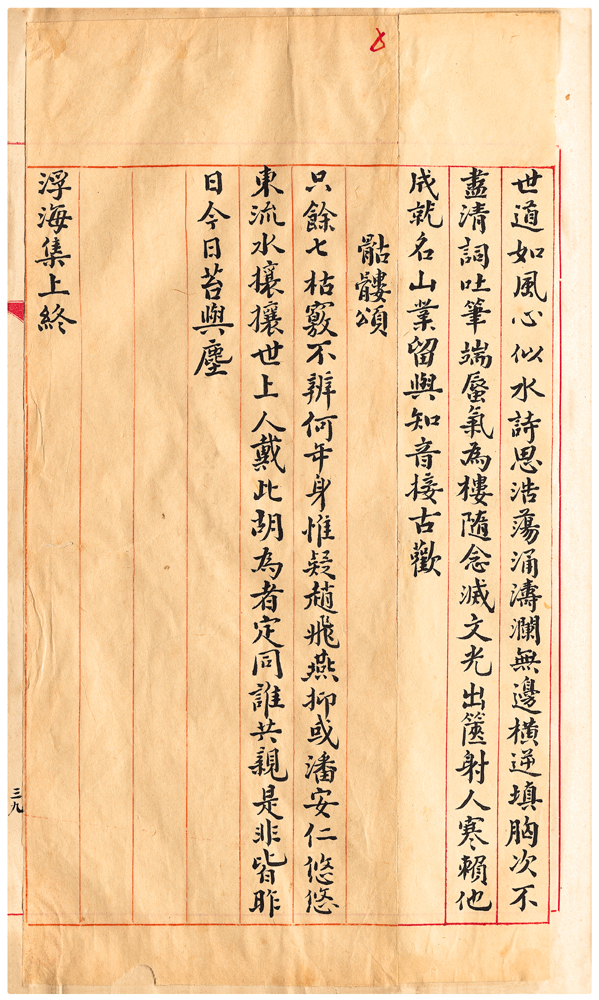 世道如風心似水詩思浩蕩涌濤瀾無邊橫逆填胸次不
盡清詞吐筆端蜃氣為樓隨念滅文光出篋射人寒賴他
成就名山業留與知音接古歡
骷髏頌
只餘七枯竅不辨何年身惟疑趙飛燕抑或潘安仁悠悠
東流水攘攘世上人戴此胡為者定同誰共親是非皆昨
日今日苔與塵
浮海集上終
三九